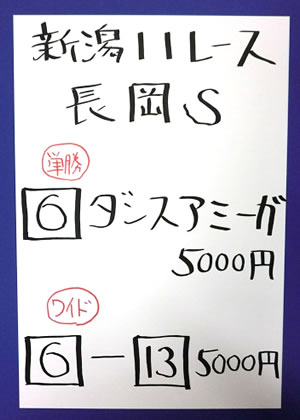 新潟11レース
長岡S
単勝
6 ダンスアミーガ
5000円
ワイド
6－13 5000円